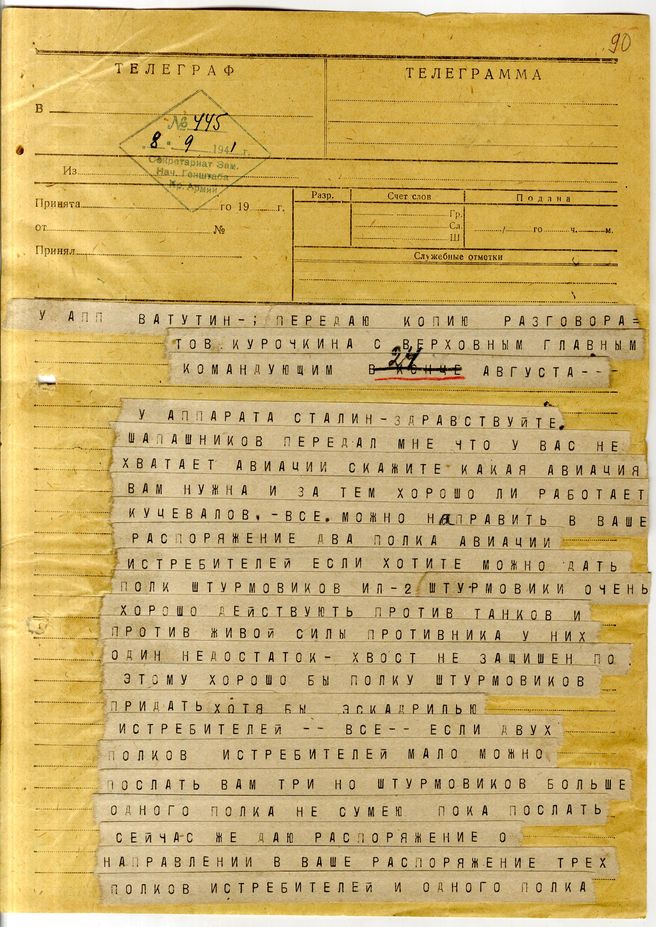 90
ТЕЛЕГРАФ
ТЕЛЕГРАММА
В
№ 445
8 9 1941 г.
Секретариат Зам.
Нач. Генштаба
Кр. Армии
Из
Принята го 19 г.
от №
Принял
Разр. Счет слов Подана
Гр.
Сл.
Ш
/ го ч. м.
Служебные отметки
У АПП ВАТУТИН-; ПЕРЕДАЮ КОПИЮ РАЗГОВОРА=
ТОВ.КУРОЧКИНА С ВЕРХОВНЫМ ГЛАВНЫМ
КОМАНДУЮЩИМ В КОНЦЕ 27 АВГУСТА--
У АППАРАТА СТАЛИН-ЗДРАВСТВУЙТЕ.
ШАПАШНИКОВ ПЕРЕДАЛ МНЕ ЧТО У ВАС НЕ
ХВАТАЕТ АВИАЦИИ СКАЖИТЕ КАКАЯ АВИАЦИЯ
ВАМ НУЖНА И ЗА ТЕМ ХОРОШО ЛИ РАБОТАЕТ
КУЧЕВАЛОВ.-ВСЕ.МОЖНО НАПРАВИТЬ В ВАШЕ
РАСПОРЯЖЕНИЕ ДВА ПОЛКА АВИАЦИИ
ИСТРЕБИТЕЛЕЙ ЕСЛИ ХОТИТЕ МОЖНО ДАТЬ
ПОЛК ШТУРМОВИКОВ ИЛ-2 ШТУРМОВИКИ ОЧЕНЬ
ХОРОШО ДЕЙСТВУЮТЬ ПРОТИВ ТАНКОВ И
ПРОТИВ ЖИВОЙ СИЛЫ ПРОТИВНИКА У НИХ
ОДИН НЕДОСТАТОК- ХВОСТ НЕ ЗАЩИШЕН ПО
ЭТОМУ ХОРОШО БЫ ПОЛКУ ШТУРМОВИКОВ
ПРИДАТЬ ХОТЯ БЫ ЭСКАДРИЛЬЮ
ИСТРЕБИТЕЛЕЙ -- ВСЕ-- ЕСЛИ ДВУХ
ПОЛКОВ ИСТРЕБИТЕЛЕЙ МАЛО МОЖНО
ПОСЛАТЬ ВАМ ТРИ НО ШТУРМОВИКОВ БОЛЬШЕ
ОДНОГО ПОЛКА НЕ СУМЕЮ ПОКА ПОСЛАТЬ
СЕЙЧАС ЖЕ ДАЮ РАСПОРЯЖЕНИЕ О
НАПРАВЛЕНИИ В ВАШЕ РАСПОРЯЖЕНИЕ ТРЕХ
ПОЛКОВ ИСТРЕБИТЕЛЕЙ И ОДНОГО ПОЛКА